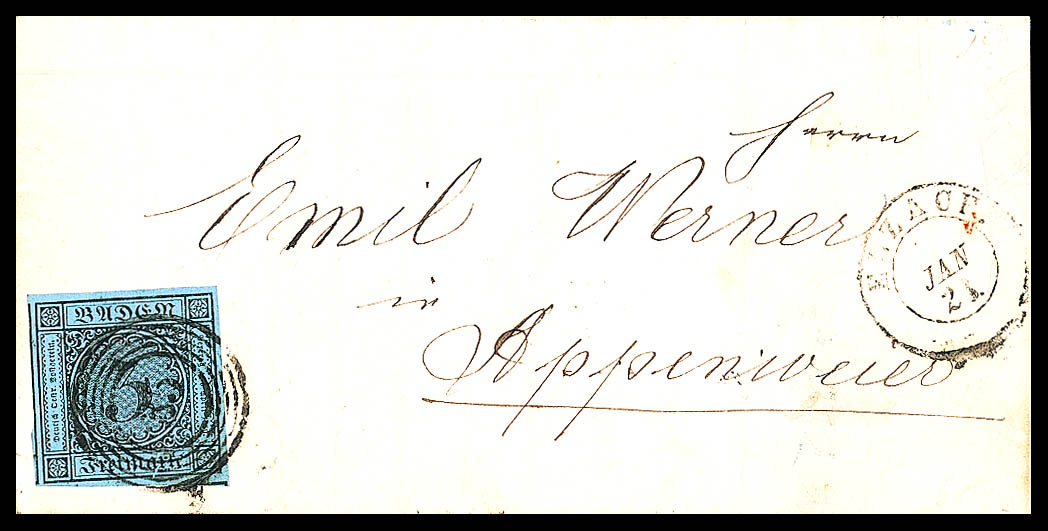 Herrn
Emil Werner
in
Appenweier
ELZACH.
JAN
24.
BADEN
Freimarke.